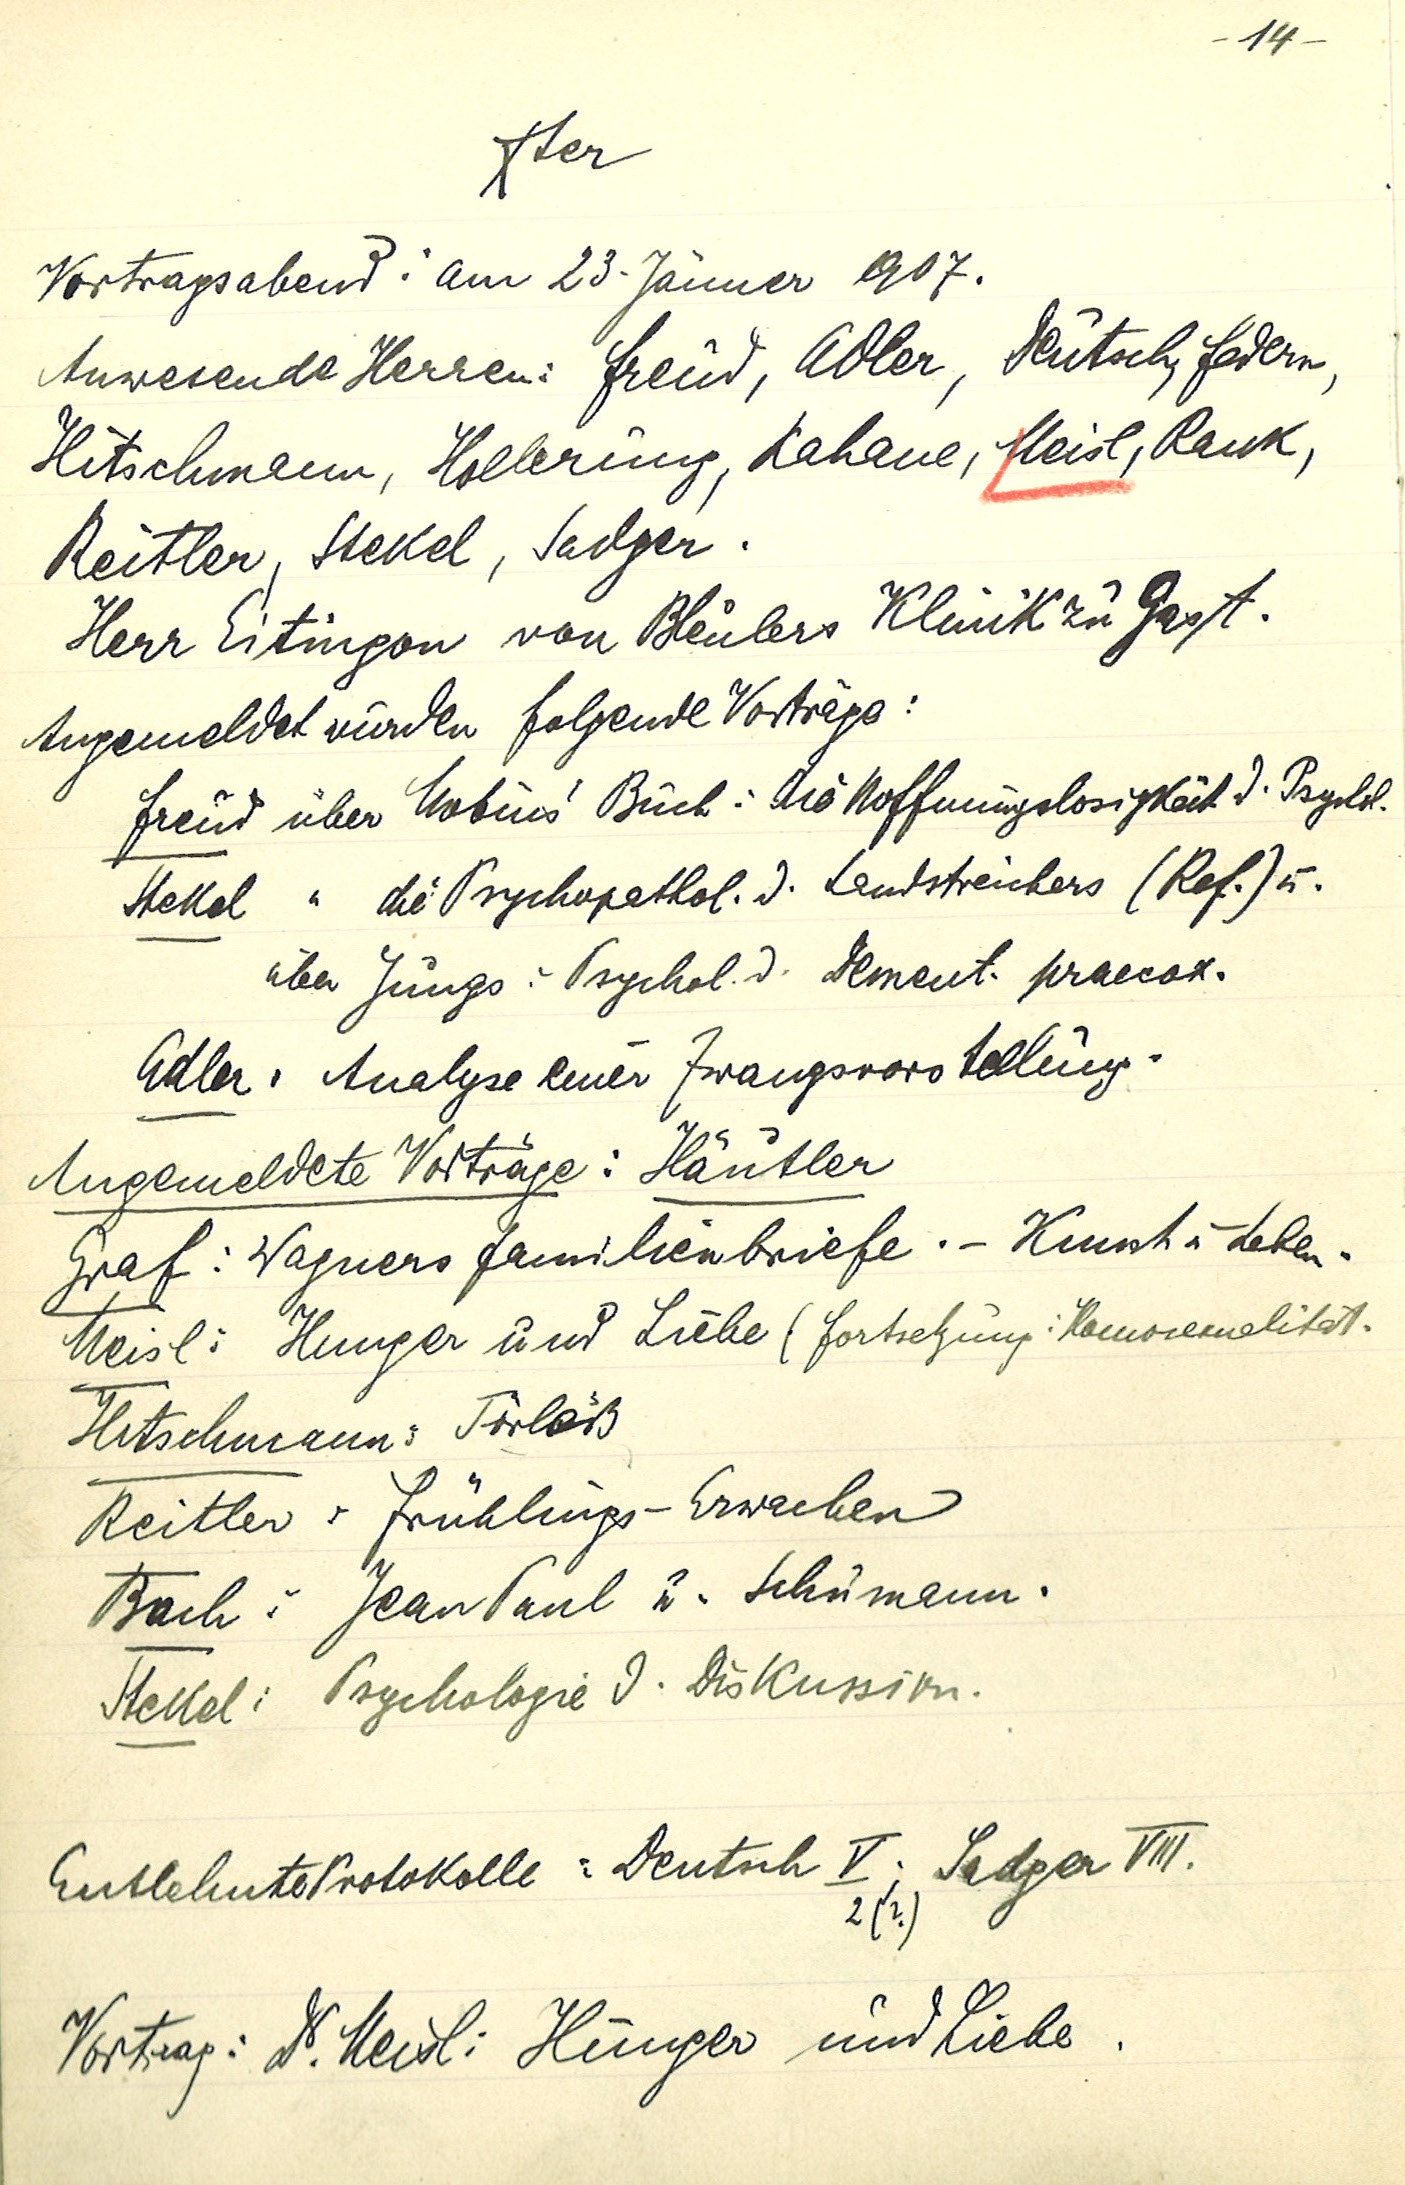 - 14 -
Xter
Vortragsabend: am 23. Jänner 1907.
Anwesende Herren: Freud, Adler, Deutsch, Federn,
Hitschmann, Hollerung, Kahane, Meisl, Rank,
Reitler, Stekel, Sadger.
Herr Eitingon von Bleulers Klinik zu Gast.
Angemeldet wurden folgende Vorträge:
Freud über Möbius' Buch: die Hoffnungslosigkeit d. Psychol.
Stekel " die Psychopathol. d. Landstreichers (Ref.) u.
über Jungs: Psychol. d. Dement. praecox.
Adler: Analyse einer Zwangsvorstellung.
Angemeldete Vorträge: Häutler
Graf: Wagners Familienbriefe. - Kunst u Leben.
Meisl: Hunger und Liebe (Fortsetzung: Homosexualität.
Hitschmann: Törleß
Reitler: Frühlings-Erwachen
Bach: Jean Paul u. Schumann.
Stekel: Psychologie d. Diskussion.
Entlehnte Protokolle: Deutsch V; Sadger VIII.
2 (?)
Vortrag: Dr. Meisl: Hunger und Liebe.